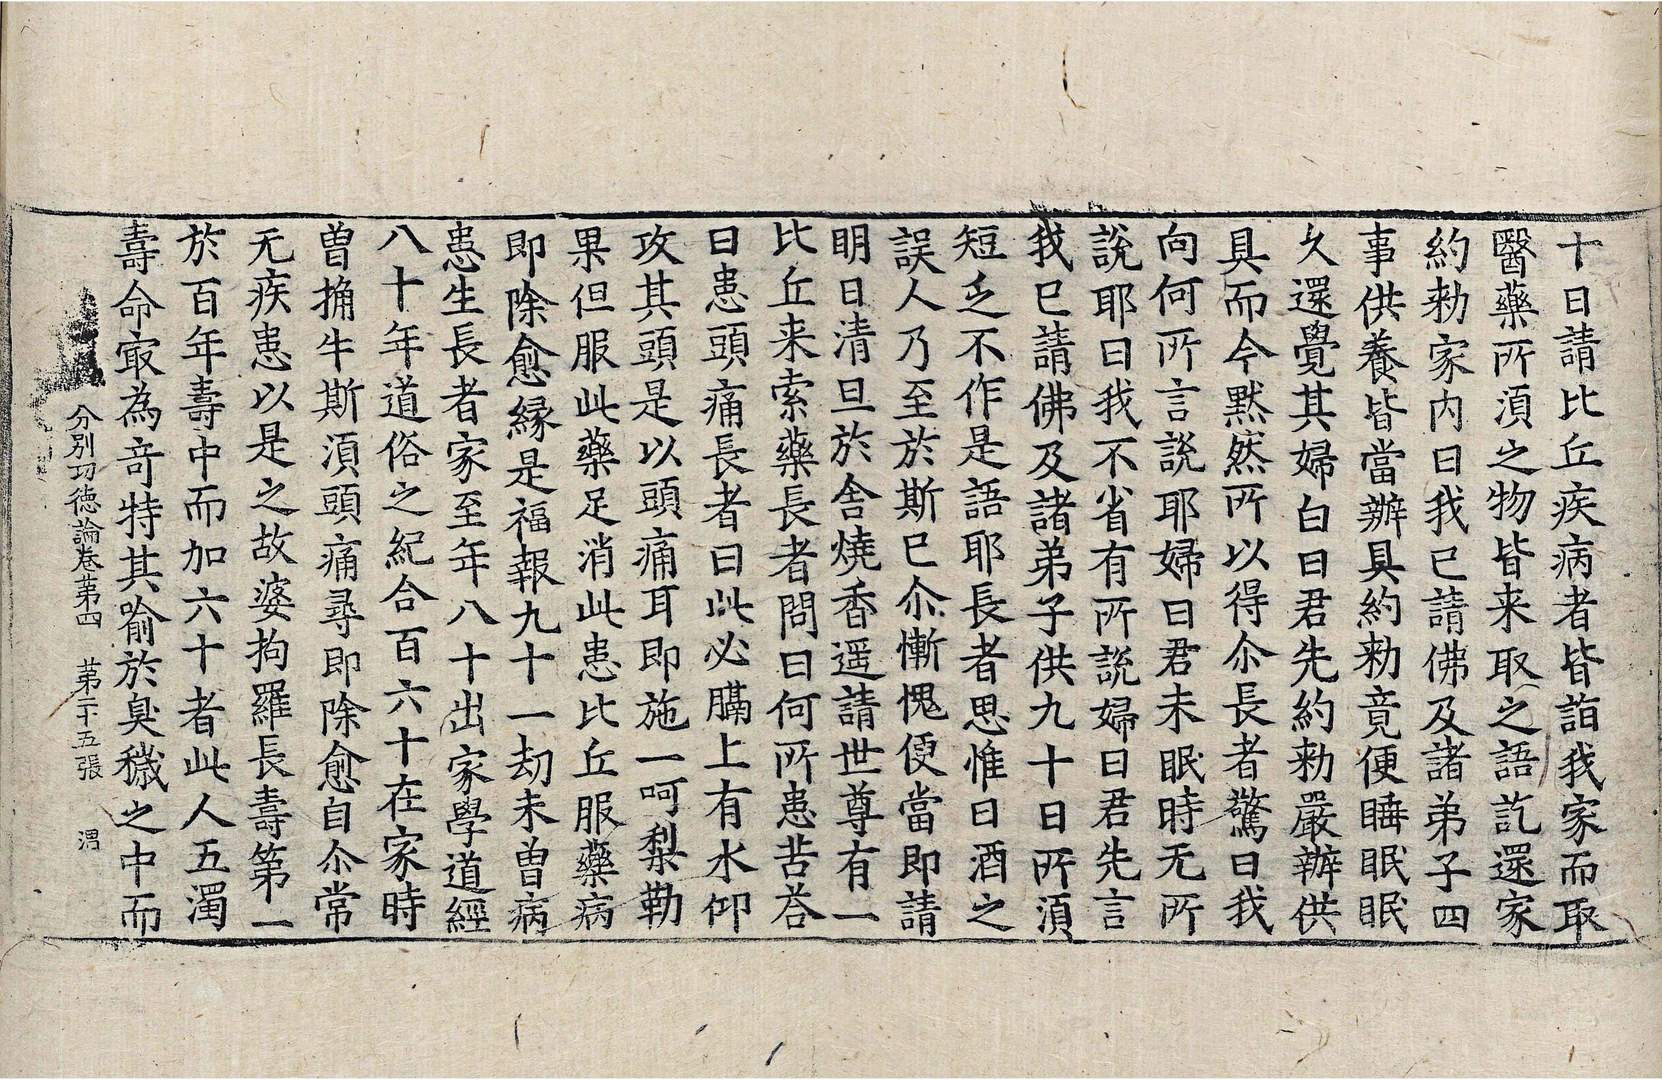 十日請比丘疾病者皆詣我家而取
醫藥所湏之物皆来取之語訖還家
約勑家内曰我已請佛及諸弟子四
事供養皆當辦具約勑竟便睡眠眠
久還覺其婦白曰君先約勑嚴辦供
具而今默然所以得尒長者驚曰我
向何所言說耶婦曰君未眠時无所
說耶曰我不省有所說婦曰君先言
我已請佛及諸弟子供九十日所湏
短乏不作是語耶長者思惟曰酒之
誤人乃至於斯已尒慚愧便當即請
明日清旦於舎燒香遥請世尊有一
比丘来索藥長者問曰何所患苦荅
曰患頭痛長者曰此必膈上有水仰
攻其頭是以頭痛耳即施一呵梨勒
果但服此藥足消此患比丘服藥病
即除愈縁是福報九十一劫未曽病
患生長者家至年八十出家學道經
八十年道俗之紀合百六十在家時
曽搆牛斯湏頭痛尋即除愈自尒常
无疾患以是之故婆拘羅長壽第一
於百年壽中而加六十者此人五濁
壽命㝡為竒特其喻於臭穢之中而
分別功德論卷苐四　苐二十五張　渭